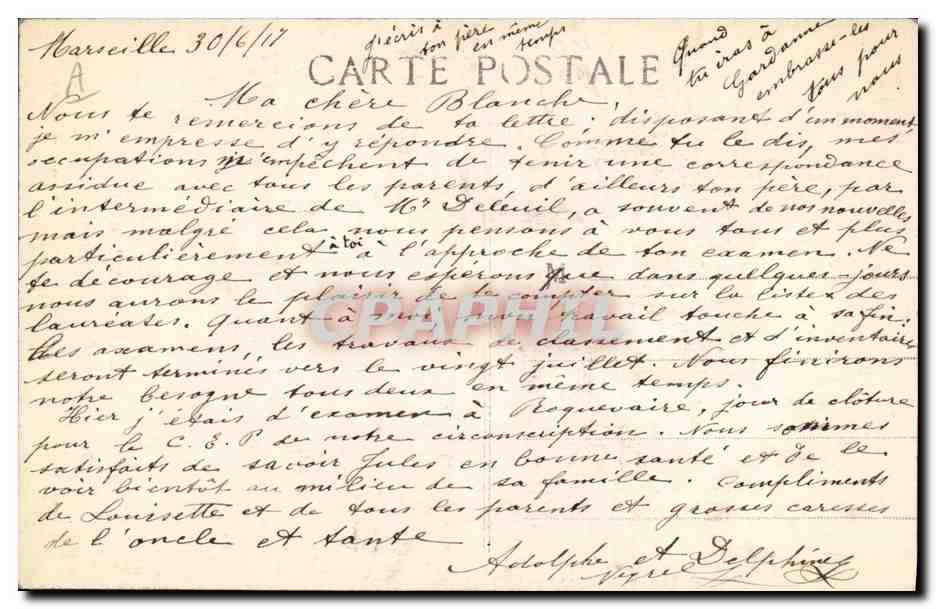 Marseille 30/6/17
J'écris à
ton père
en même
temps
Quand
tu iras à
Gardanne
embrasse-les
tous pour
nous
A
CARTE POSTALE
Ma chère Blanche,
Nous te remercions de ta lettre ; disposant d'un moment
je m'empresse d'y répondre. Comme tu le dis, mes
occupations m'empêchent de tenir une correspondance
assidue avec tous les parents, d'ailleurs ton père, par
l'intermédiaire de Mr Deleuil, a souvent de nos nouvelles
mais malgré cela, nous pensons à vous tous et plus
particulièrement à toi à l'approche de ton examen. Ne
te décourage et nous esperons que dans quelques jours
nous aurons le plaisir de te compter sur la liste des
lauréates. Quant à moi mon travail touche à sa fin.
Les examens, les travaux de classement et d'inventaire
seront terminés vers le vingt juillet. Nous finirons
notre besogne tous deux en même temps.
Hier j'étais d'examen à Roquevaire, jour de clôture
pour le C.E.P de notre circonscription. Nous sommes
satisfaits de savoir Jules en bonne santé et de le
voir bientôt au milieu de sa famille. Compliments
de Louisette et de tous les parents et grosses caresses
de l'oncle et tante
Adolphe et Delphine
CPAPHIL